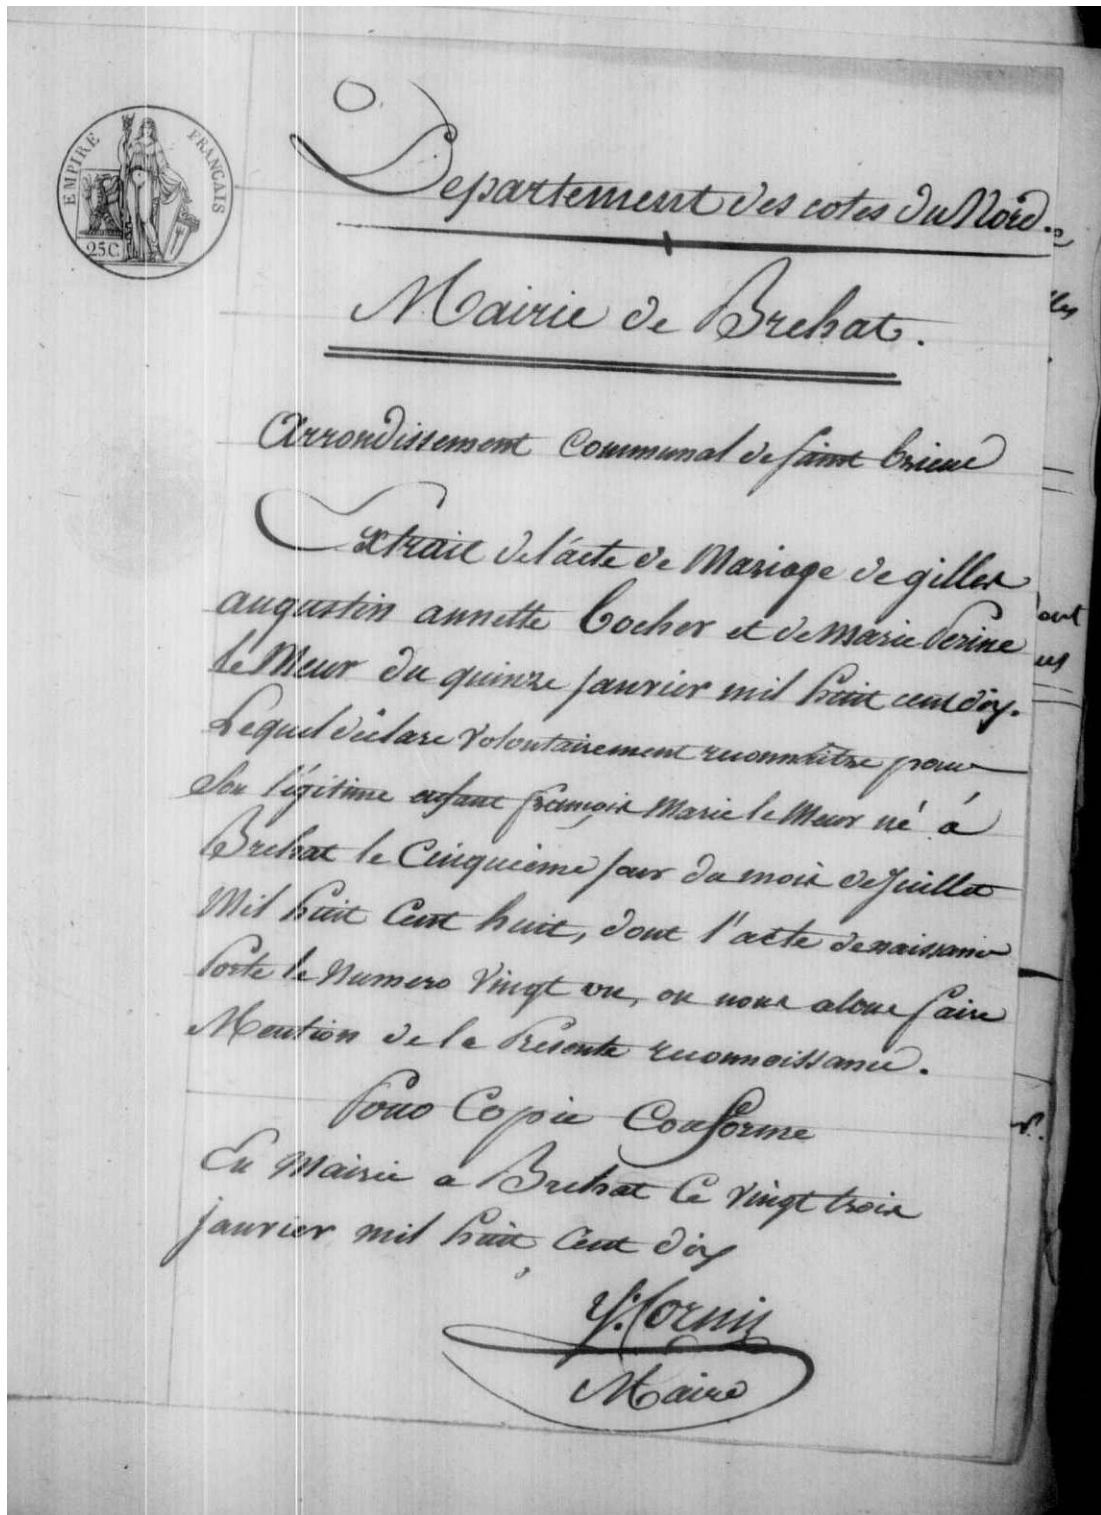 EMPIRE FRANCAIS
25C
Departement des cotes du Nord.
Mairie de Brehat.
Arrondissement Communal de saint brieuc
Extrait de l'acte de Mariage de gilles
augustin annette Cocher et de marie Perine
le Meur du quinze janvier mil huit cent dix.
Lequel déclare volontairement reconnaitre pour
Son légitime enfant françois Marie le Meur né á
Brehat le Cinquieme jour du mois de Juillet
Mil huit Cent huit, dont l'acte de naissance
Porte le Numero Vingt un, ou nous alons faire
Mention de la Presente reconnoissance.
Pour Copie Conforme
En Mairie a Brehat Ce vingt trois
janvier mil huit Cent dix
Y. Cornic
Maire